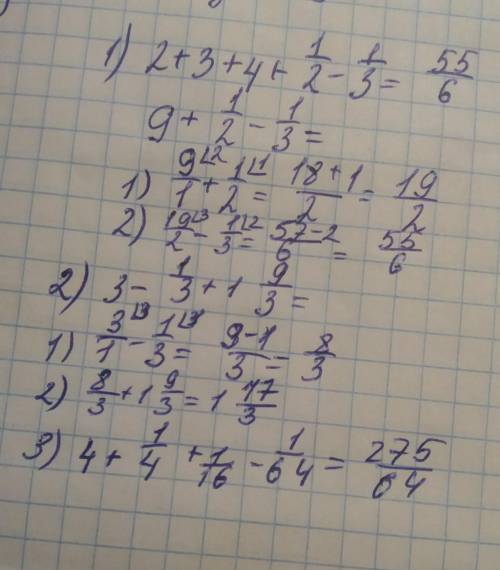 1) 2 + 3 + 4 + 1/2 - 1/3 = 55/6
9 + 1/2 - 1/3 =
1) 9/1 ⌊2 + 1/2 ⌊1 = 18+1/2 = 19/2
2) 19/2 ⌊3 - 1/3 ⌊2 = 57-2/6 = 55/6
2) 3 - 1/3 + 1 9/3 =
1) 3/1 ⌊3 - 1/3 ⌊1 = 9-1/3 = 8/3
2) 8/3 + 1 9/3 = 1 17/3
3) 4 + 1/4 + 1/16 - 1/64 = 275/64